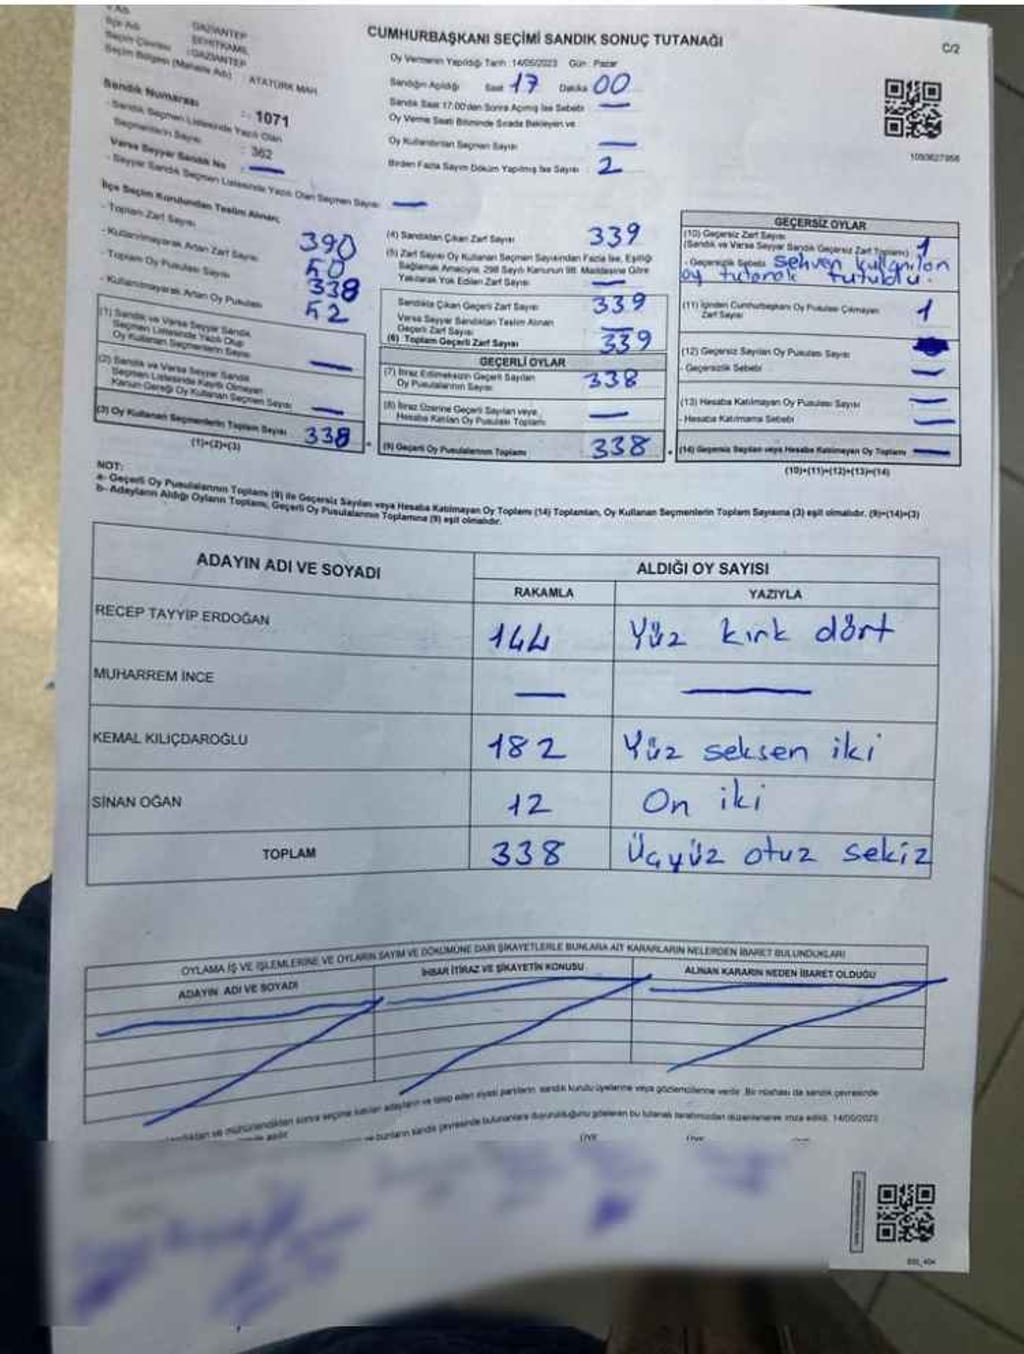 İlçe Adı
Seçim Çevresi
Seçim Bölgesi (Mahalle Adı)
GAZİANTEP
ŞEHİTKAMİL
: GAZİANTEP
: ATATÜRK MAH
Sandık Numarası : 1071
- Sandık Seçmen Listesinde Yazılı Olan
Seçmenlerin Sayısı : 362
Varsa Seyyar Sandık No : —
- Seyyar Sandık Seçmen Listesinde Yazılı Olan Seçmen Sayısı : —
CUMHURBAŞKANI SEÇİMİ SANDIK SONUÇ TUTANAĞI
C/2
Oy Vermenin Yapıldığı Tarih : 14/05/2023 Gün : Pazar
Sandığın Açıldığı Saat 17 Dakika 00
Sandık Saat 17.00'den Sonra Açılmış İse Sebebi —
Oy Verme Saati Bitiminde Sırada Bekleyen ve
Oy Kullandırılan Seçmen Sayısı —
Birden Fazla Sayım Döküm Yapılmış İse Sayısı 2
1090627958
İlçe Seçim Kurulundan Teslim Alınan;
- Toplam Zarf Sayısı 390
- Kullanılmayarak Artan Zarf Sayısı 50
- Toplam Oy Pusulası Sayısı 338
- Kullanılmayarak Artan Oy Pusulası 52
(1) Sandık ve Varsa Seyyar Sandık
Seçmen Listesinde Yazılı Olup
Oy Kullanan Seçmenlerin Sayısı —
(2) Sandık ve Varsa Seyyar Sandık
Seçmen Listesinde Kayıtlı Olmayan
Kanun Gereği Oy Kullanan Seçmen Sayısı —
(3) Oy Kullanan Seçmenlerin Toplam Sayısı 338
(1)+(2)=(3)
(4) Sandıktan Çıkan Zarf Sayısı 339
(5) Zarf Sayısı Oy Kullanan Seçmen Sayısından Fazla İse, Eşitliği
Sağlamak Amacıyla, 298 Sayılı Kanunun 98. Maddesine Göre
Yakılarak Yok Edilen Zarf Sayısı —
Sandıkta Çıkan Geçerli Zarf Sayısı 339
Varsa Seyyar Sandıktan Teslim Alınan
Geçerli Zarf Sayısı —
(6) Toplam Geçerli Zarf Sayısı 339
GEÇERLİ OYLAR
(7) İtiraz Edilmeksizin Geçerli Sayılan
Oy Pusulalarının Sayısı 338
(8) İtiraz Üzerine Geçerli Sayılan veya
Hesaba Katılan Oy Pusulası Toplamı —
(9) Geçerli Oy Pusulalarının Toplamı 338
GEÇERSİZ OYLAR
(10) Geçersiz Zarf Sayısı
(Sandık ve Varsa Seyyar Sandık Geçersiz Zarf Toplamı) 1
- Geçersizlik Sebebi Sehven kullanılan
oy tutanak tutuldu.
(11) İçinden Cumhurbaşkanı Oy Pusulası Çıkmayan
Zarf Sayısı 1
(12) Geçersiz Sayılan Oy Pusulası Sayısı
- Geçersizlik Sebebi —
(13) Hesaba Katılmayan Oy Pusulası Sayısı —
- Hesaba Katılmama Sebebi —
(14) Geçersiz Sayılan veya Hesaba Katılmayan Oy Toplamı —
(10)+(11)+(12)+(13)=(14)
NOT:
a- Geçerli Oy Pusulalarının Toplamı (9) ile Geçersiz Sayılan veya Hesaba Katılmayan Oy Toplamı (14) Toplamları, Oy Kullanan Seçmenlerin Toplam Sayısına (3) eşit olmalıdır. (9)+(14)=(3)
b- Adayların Aldığı Oyların Toplamı, Geçerli Oy Pusulalarının Toplamına (9) eşit olmalıdır.
ADAYIN ADI VE SOYADI
ALDIĞI OY SAYISI
RAKAMLA YAZIYLA
RECEP TAYYİP ERDOĞAN 144 Yüz kırk dört
MUHARREM İNCE — —
KEMAL KILIÇDAROĞLU 182 Yüz seksen iki
SİNAN OĞAN 12 On iki
TOPLAM 338 Üçyüz otuz sekiz
OYLAMA İŞ VE İŞLEMLERİNE VE OYLARIN SAYIM VE DÖKÜMÜNE DAİR ŞİKAYETLERLE BUNLARA AİT KARARLARIN NELERDEN İBARET BULUNDUKLARI
ADAYIN ADI VE SOYADI
İHBAR İTİRAZ VE ŞİKAYETİN KONUSU
ALINAN KARARIN NEDEN İBARET OLDUĞU
sonra seçime katılan adayların ve talep eden siyasi partilerin sandık kurulu üyelerine veya gözlemcilerine verilir. Bir nüshası da sandık çevresinde
ve bunların sandık çevresinde bulunanlara duyurulduğunu gösteren bu tutanak tarafımızdan düzenlenerek imza edildi. 14/05/2023